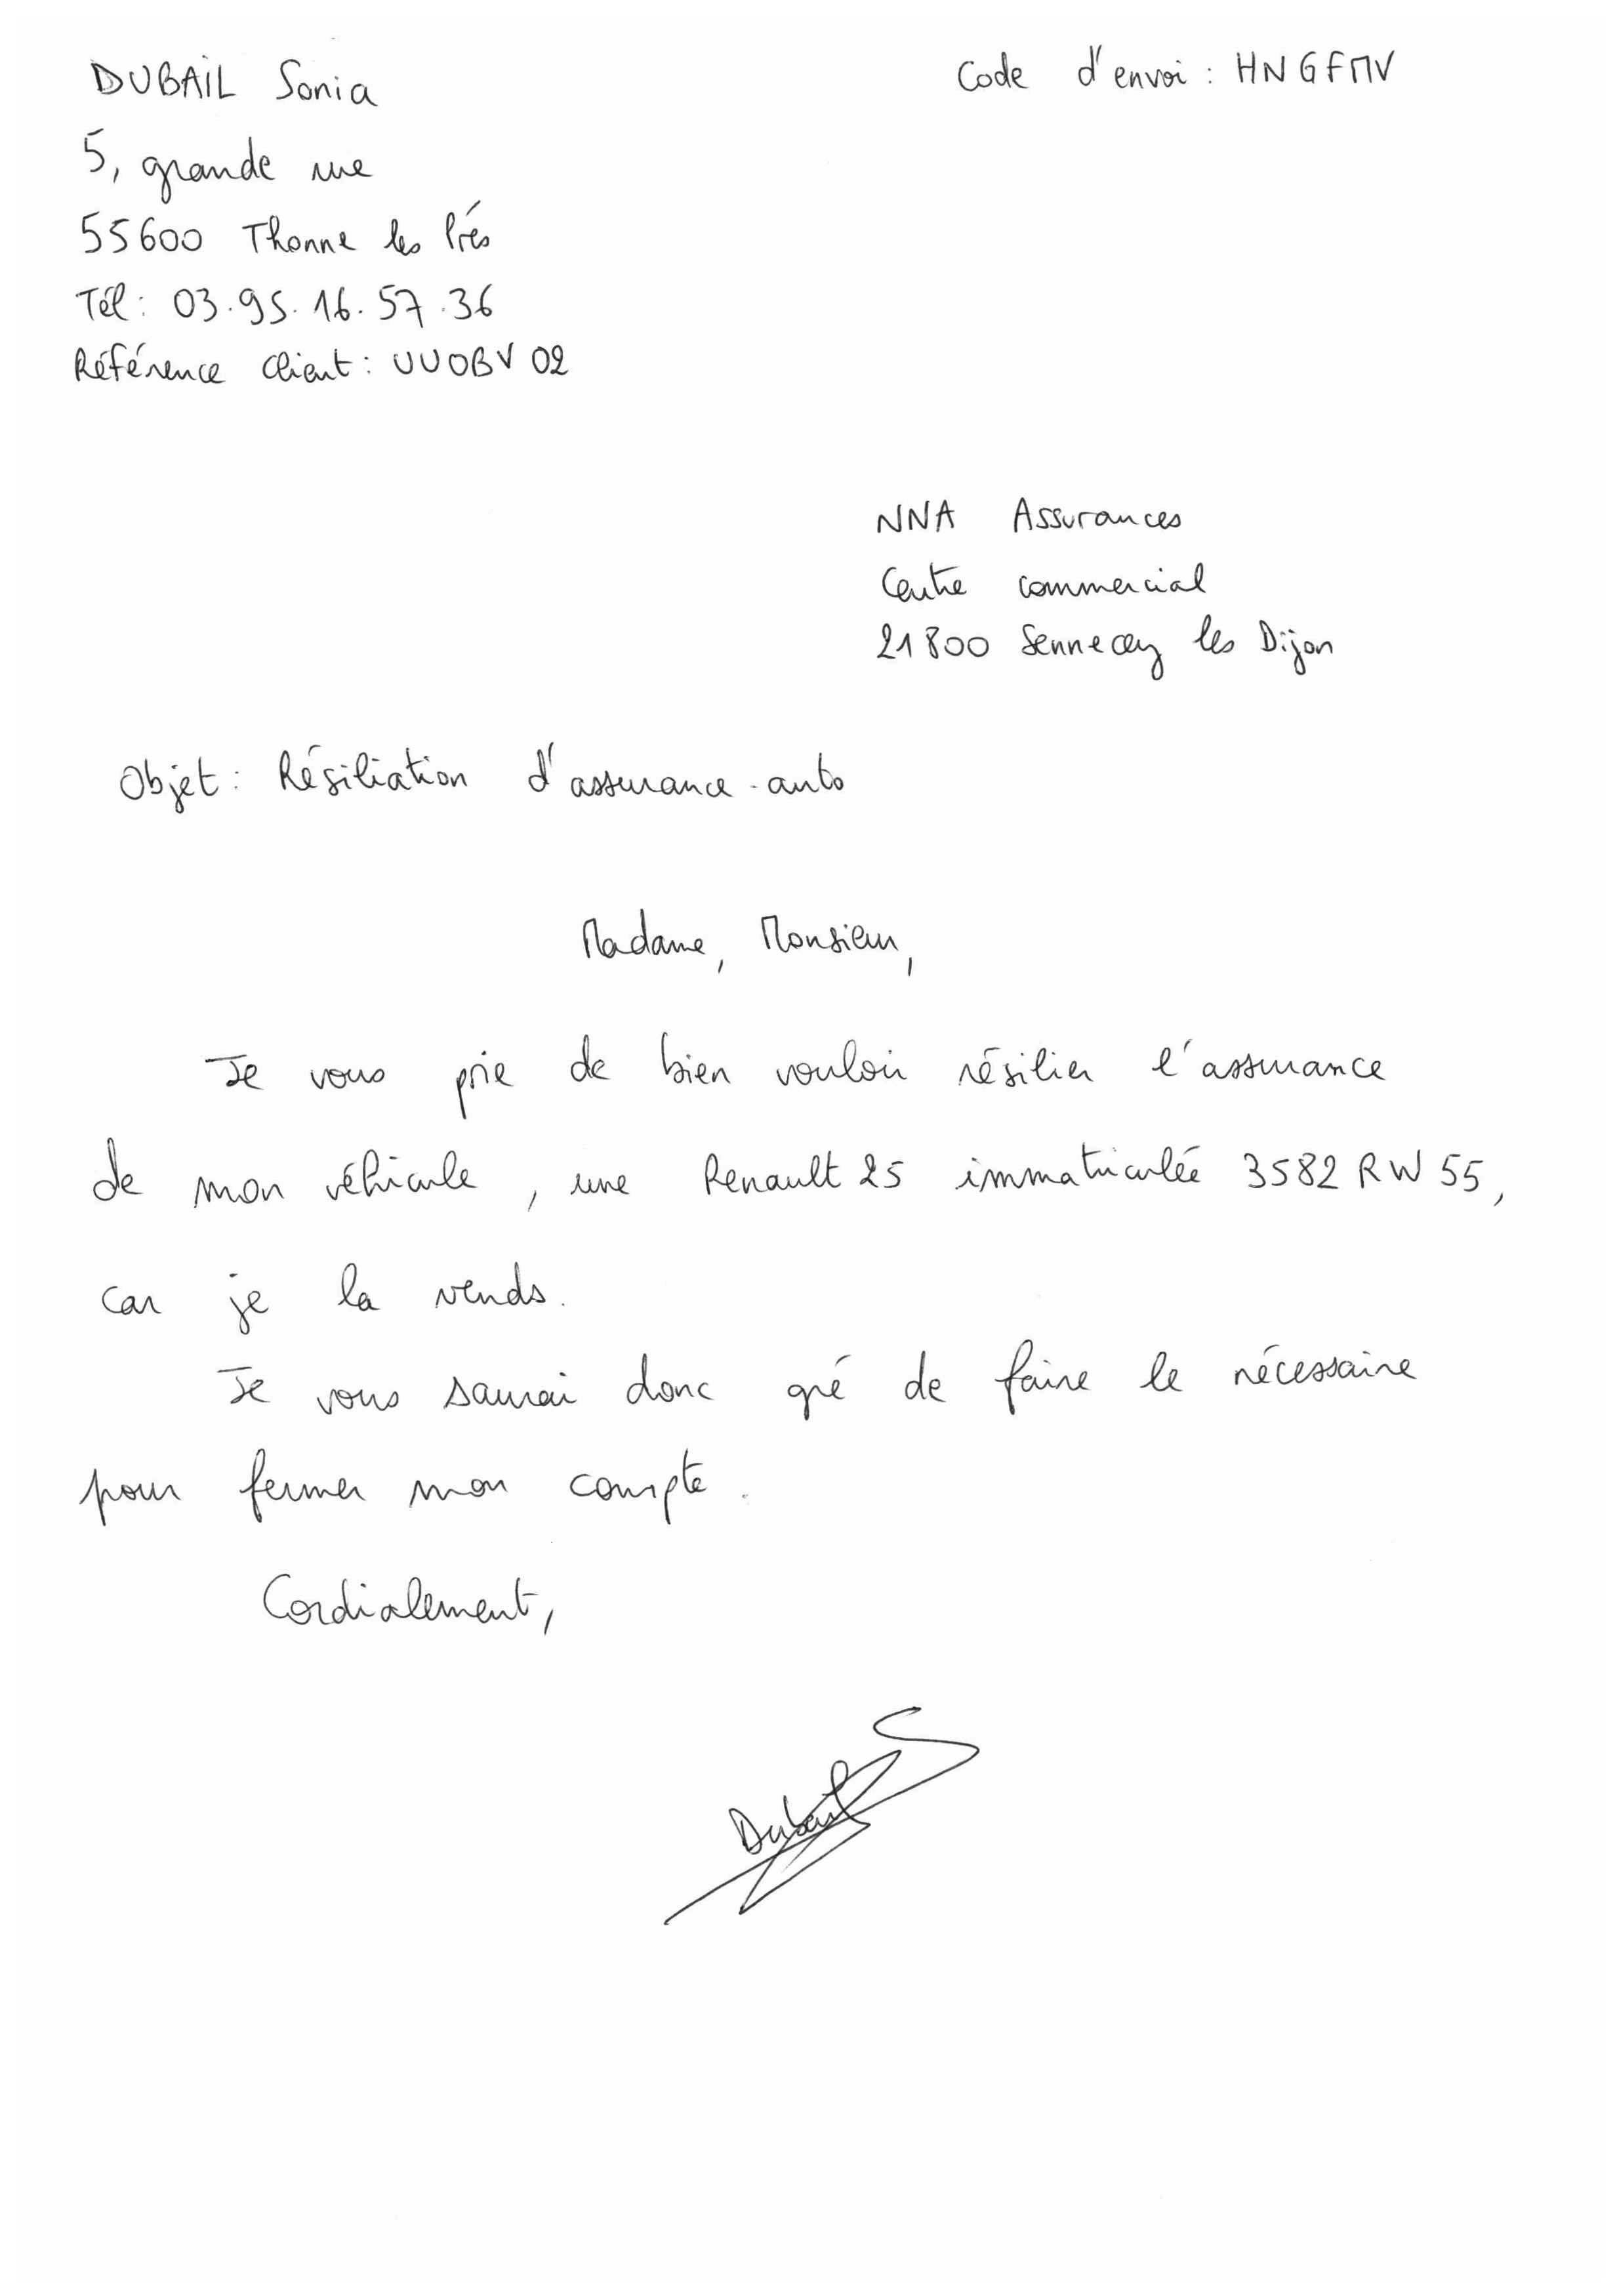 DUBAIL Sonia
Code d'envoi : HNGFMV
5, grande rue
55600 Thonne les Prés
Tél : 03.95.16.57.36
Référence client : UUOBV02
NNA Assurances
Centre commercial
21800 Sennecey les Dijon
Objet : Résiliation d'assurance-auto
Madame, Monsieur,
Je vous prie de bien vouloir résilier l'assurance
de mon véhicule, une Renault 25 immatriculée 3582 RW 55,
car je la vends.
Je vous saurai donc gré de faire le nécessaire
pour fermer mon compte.
Cordialement,
Dubail S